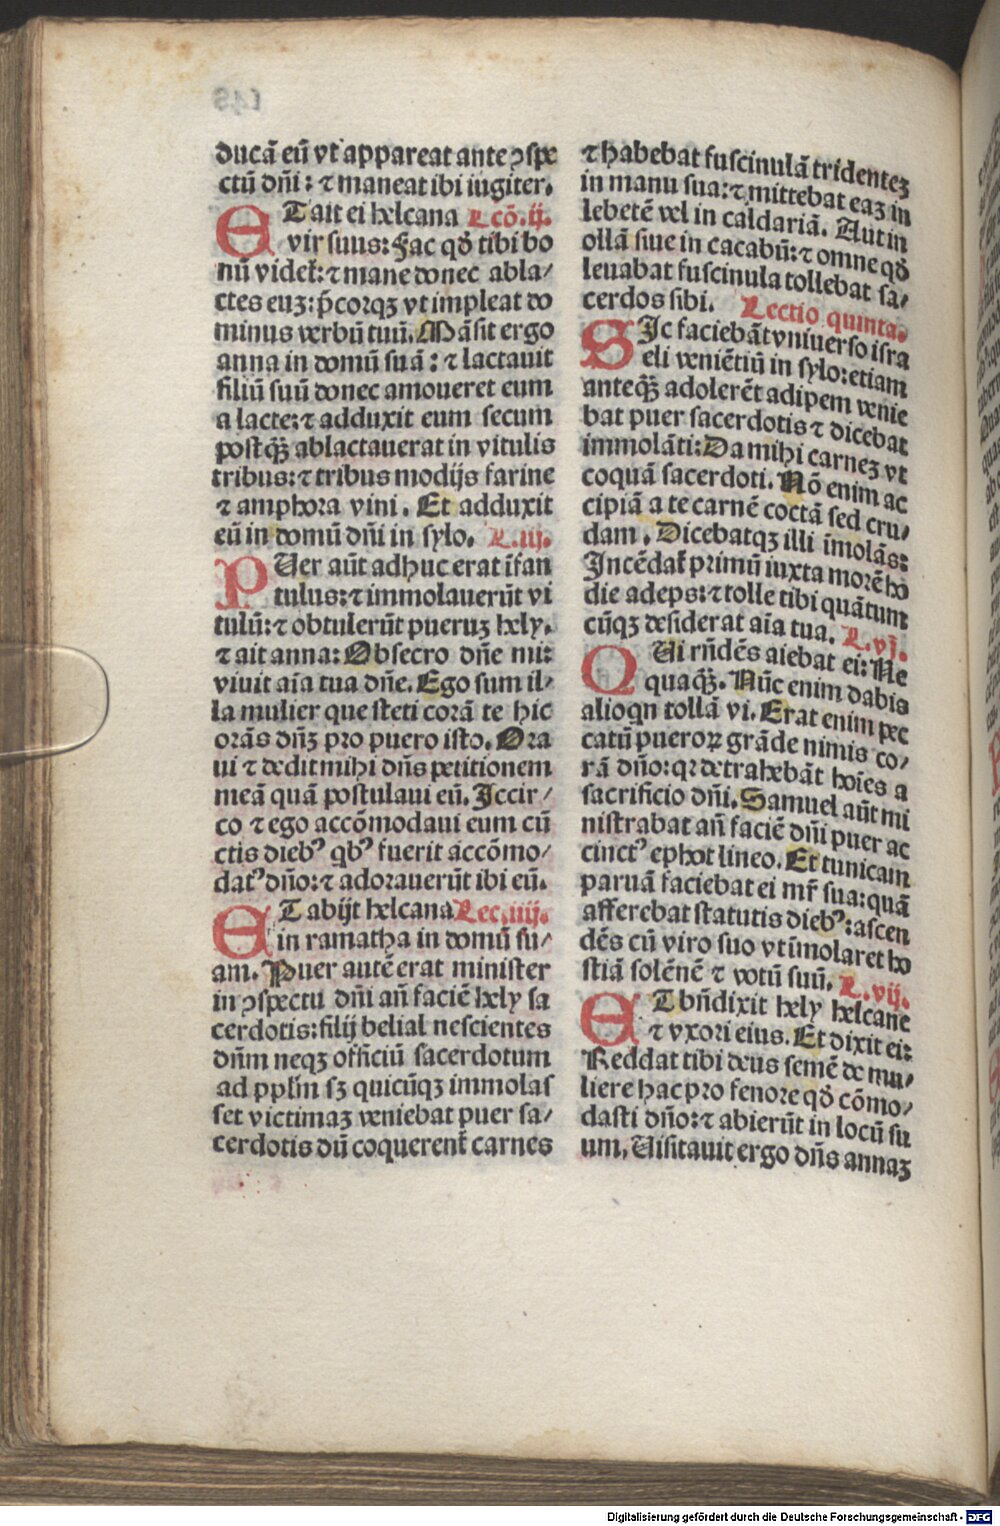 ducā eū vt appareat ante ꝯspe
ctū dn̄i: ⁊ maneat ibi iugiter.
ET ait ei helcana Lcō.ij.
vir suus: Fac qd̄ tibi bo
nū videt̄: ⁊ mane donec abla/
ctes euꝫ: p̄corqꝫ vt impleat do
minus verbū tuū. Māsit ergo
anna in domū suā: ⁊ lactauit
filiū suū donec amoueret eum
a lacte: ⁊ adduxit eum secum
postq̄ꝫ ablactauerat in vitulis
tribus: ⁊ tribus modijs farine
⁊ amphora vini. Et adduxit
eū in domū dn̄i in sylo. L.iij.
PUer aūt adhuc erat īfan
tulus: ⁊ immolauerūt vi
tulū: ⁊ obtulerūt pueruꝫ hely.
⁊ ait anna: Obsecro dn̄e mi:
viuit aīa tua dn̄e. Ego sum il/
la mulier que steti corā te hic
orās dn̄ꝫ pro puero isto. Ora
ui ⁊ dedit mihi dn̄s petitionem
meā quā postulaui eū. Iccir/
co ⁊ ego accōmodaui eum cū
ctis dieb⁹ qb⁹ fuerit accōmo/
dat⁹ dn̄o: ⁊ adorauerūt ibi eū.
ET abijt helcana Lec.iiij.
in ramatha in domū su/
am. Puer autē erat minister
in ꝯspectu dn̄i an̄ faciē hely sa
cerdotis: filij belial nescientes
dn̄m neqꝫ offn̄ciū sacerdotum
ad pplm̄ sꝫ quicūqꝫ immolas
set victimaꝫ veniebat puer sa/
cerdotis dū coquerent̄ carnes
⁊ habebat fuscinulā tridenteꝫ
in manu sua: ⁊ mittebat eaꝫ in
lebetē vel in caldariā. Aut in
ollā siue in cacabū: ⁊ omne qd̄
leuabat fuscinula tollebat sa/
cerdos sibi. Lectio quinta.
SIc faciebāt vniuerso isra
eli veniētiū in sylo: etiam
anteq̄ꝫ adolerēt adipem venie
bat puer sacerdotis ⁊ dicebat
immolāti: Da mihi carneꝫ vt
coquā sacerdoti. Nō enim ac
cipiā a te carnē coctā sed cru/
dam. Dicebatqꝫ illi īmolās:
Incēdat̄ primū iuxta morē ho
die adeps: ⁊ tolle tibi quātum
cūqꝫ desiderat aīa tua. L.vj.
QUi rn̄dēs aiebat ei: Ne
quaq̄ꝫ. Nūc enim dabis
alioqn tollā vi. Erat enim pec
catū pueroꝝ grāde nimis co/
rā dn̄o: qꝛ detrahebāt hoīes a
sacrificio dn̄i. Samuel aūt mi
nistrabat an̄ faciē dn̄i puer ac
cinct⁹ ephot lineo. Et tunicam
paruā faciebat ei mr̄ sua: quā
afferebat statutis dieb⁹: ascen
dēs cū viro suo vt īmolaret ho
stiā solēnē ⁊ votū suū. L.vij.
ET bn̄dixit hely helcane
⁊ vxori eius. Et dixit ei:
Reddat tibi deus semē de mu/
liere hac pro fenore qd̄ cōmo/
dasti dn̄o: ⁊ abierūt in locū su
um. Uisitauit ergo dn̄s annaꝫ
Digitalisierung gefördert durch die Deutsche Forschungsgemeinschaft - DFG